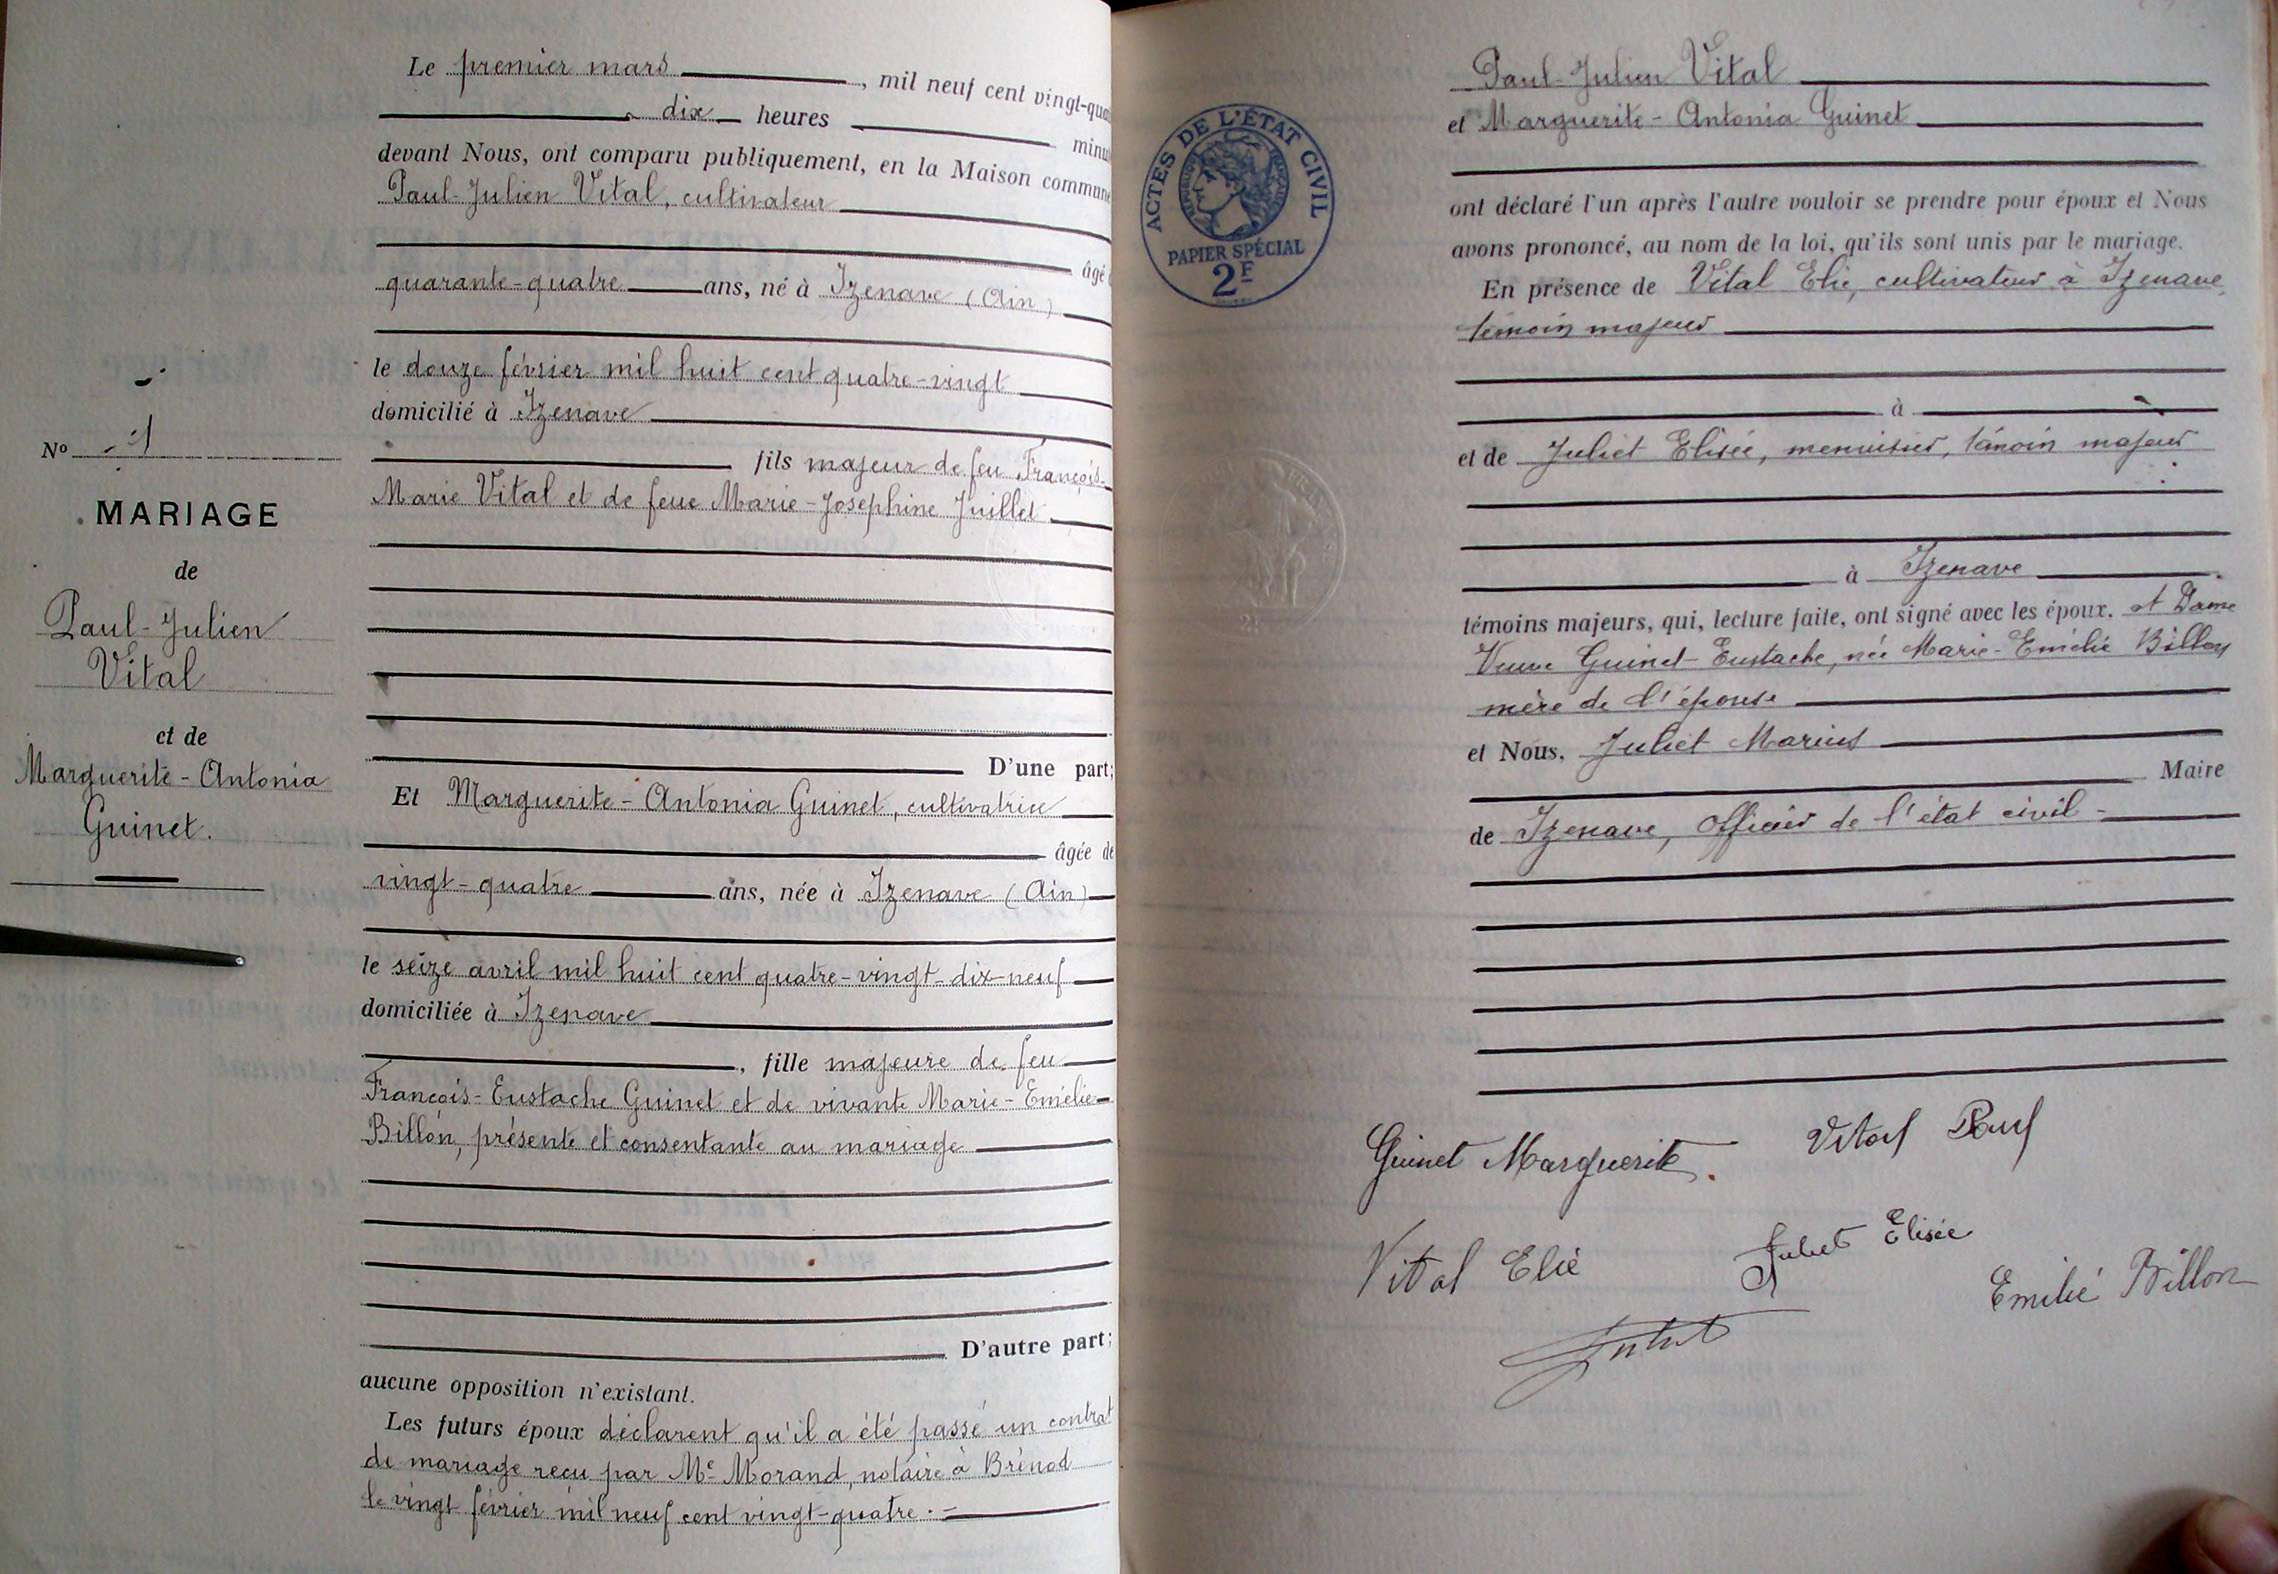 Le premier mars, mil neuf cent vingt-qua
à dix heures minu
devant Nous, ont comparu publiquement, en la Maison commune
Paul-Julien Vital, cultivateur
âgé d
quarante-quatre ans, né à Izenave (Ain)
le douze février mil huit cent quatre-vingt
domicilié à Izenave
fils majeur de feu François-
Marie Vital et de feue Marie-Joséphine Juillet
D'une part;
Et Marguerite-Antonia Guinet, cultivatrice
âgée de
vingt-quatre ans, née à Izenave (Ain)
le seize avril mil huit cent quatre-vingt-dix-neuf
domiciliée à Izenave
, fille majeure de feu
François-Eustache Guinet et de vivante Marie-Emélie
Billon, présente et consentante au mariage
D'autre part;
aucune opposition n'existant.
Les futurs époux déclarent qu'il a été passé un contrat
de mariage reçu par Me Morand, notaire à Brénod
le vingt février mil neuf cent vingt-quatre.
No 1
MARIAGE
de
Paul-Julien
Vital
et de
Marguerite-Antonia
Guinet.
Paul-Julien Vital
et Marguerite-Antonia Guinet
ont déclaré l'un après l'autre vouloir se prendre pour époux et Nous
avons prononcé, au nom de la loi, qu'ils sont unis par le mariage.
En présence de Vital Elie, cultivateur à Izenave,
témoin majeur
à
et de Juliet Elisée, menuisier, témoin majeur
à Izenave
témoins majeurs, qui, lecture faite, ont signé avec les époux. et Dame
Veuve Guinet-Eustache, née Marie-Emélie Billon
mère de l'épouse
et Nous, Juliet Marius
Maire
de Izenave, officier de l'état civil
ACTES DE L'ÉTAT CIVIL
PAPIER SPÉCIAL
2F
Guinet Marguerite. Vital Paul
Vital Elie Juliet Elisée Emilie Billon
Juliet